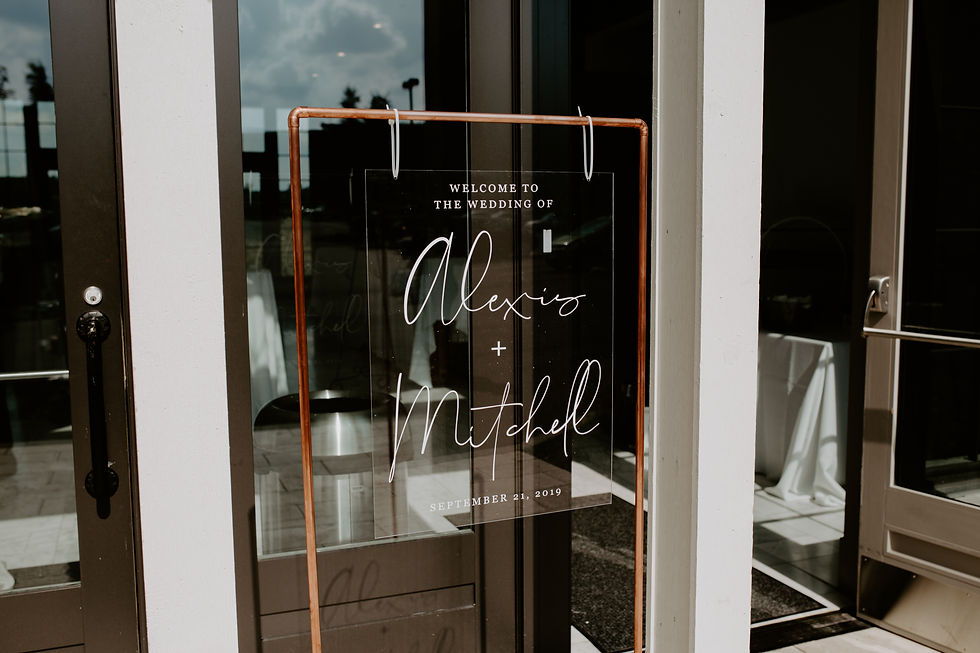 WELCOME TO
THE WEDDING OF
Alexis
+
Mitchell
SEPTEMBER 21, 2019